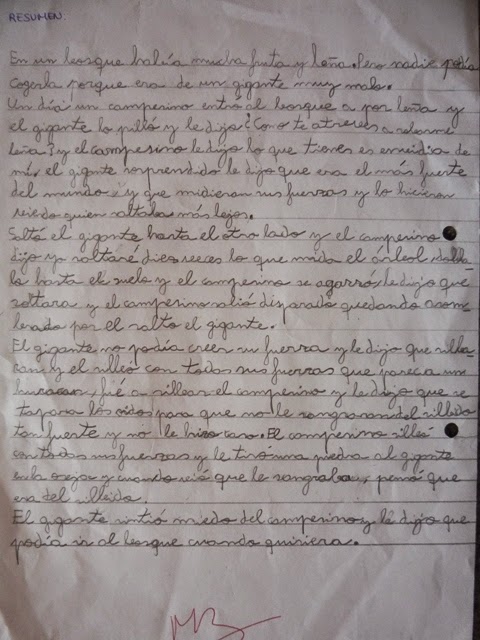 RESUMEN.
En un bosque había mucha fruta y leña. Pero nadie podía
cogerla porque era de un gigante muy malo.
Un día un campesino entró al bosque a por leña y
el gigante lo pilló y le dijo: ¿Como te atreves a robarme
leña? y el campesino le dijo lo que tienes es envidia de
mi, el gigante sorprendido le dijo que era el más fuerte
del mundo y que midieran sus fuerzas y lo hicieron
viendo quien saltaba más lejos.
Saltó el gigante hasta el otro lado y el campesino
dijo yo saltaré dies veces lo que mida el árbol
la hasta el suelo y el campesino se agarró, le dijo que
soltara y el campesino salió disparado quedando asom
brado por el salto el gigante.
El gigante no podía creer su fuerza y le dijo que silba
ran y el silbó con todas sus fuerzas que parecía un
huracan, fié a silbar el campesino y le dijo que se
tapara los oidos para que no le sangraran del silbido
tan fuerte y no le hizo caso. El campesino silbó
con todas sus fuerzas y le tiró una piedra al gigante
en la oreja y cuando vió que le sangraba, pensó que
era del silbido.
El gigante sintió miedo del campesino y le dijo que
podía ir al bosque cuando quisiera.
MB